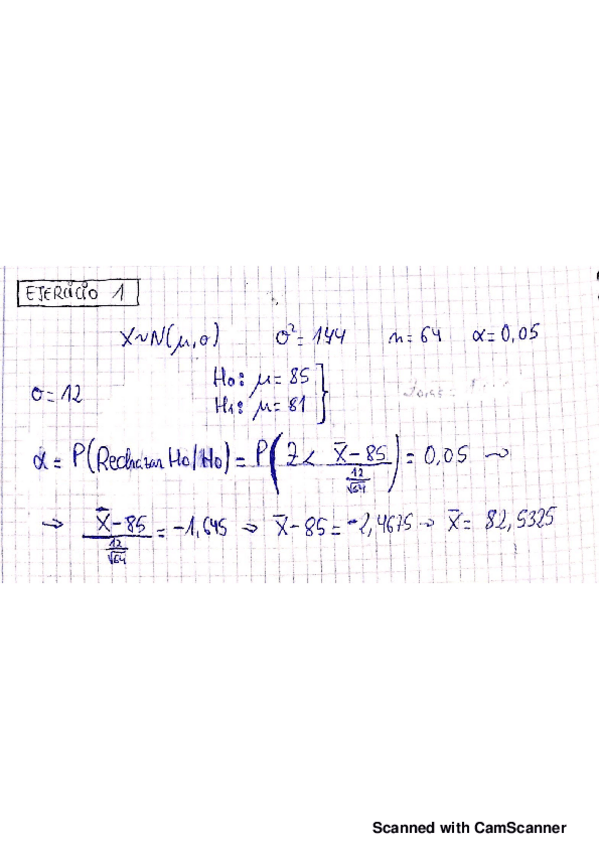 EJERCICIO 1
X~N(μ,σ) σ²=144 n=64 α=0,05
σ=12 H₀: μ=85
H₁: μ=81
α = P(Rechazar H₀/H₀) = P(Z < (X̄-85)/(12/√64)) = 0,05 →
→ (X̄-85)/(12/√64) = -1,645 → X̄-85 = -2,4675 → X̄ = 82,5325
Scanned with CamScanner